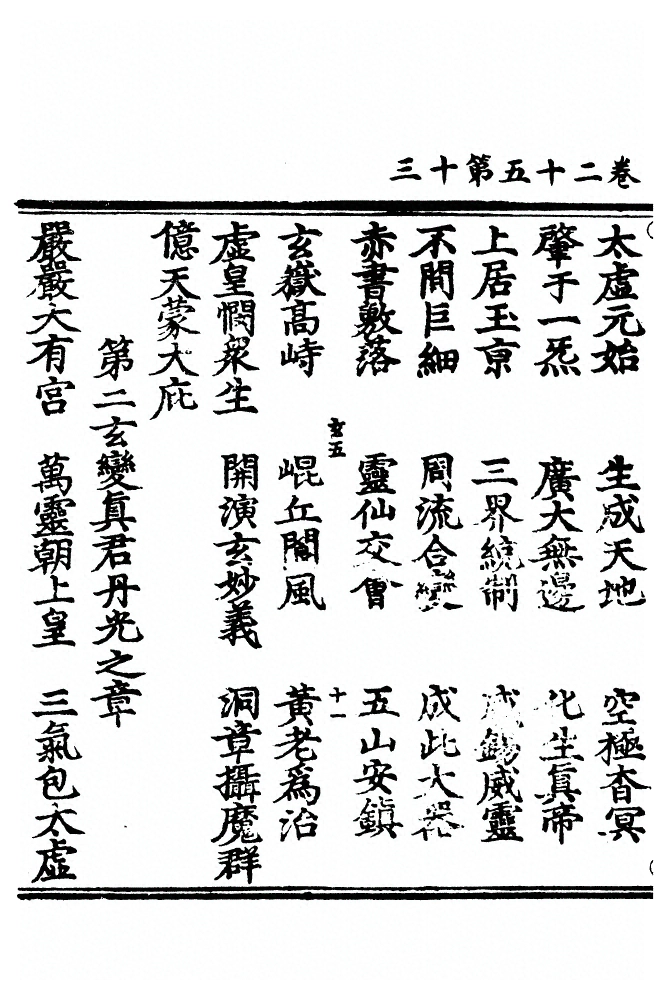 卷二十五第十三
太虛元始　生成天地　空極杳冥
肇于一炁　廣大無邊　化生眞帝
上居玉亰　三界統制　錫威靈
不問巨細　周流合變　成此大器
赤書敷落　靈仙交會　五山安鎮
玄五　十一
玄嶽高峙　崐丘閬風　黃老爲治
虛皇憫衆生　開演玄妙義　洞章攝魔群
億天蒙大庇
第二玄變眞君丹光之章
嚴嚴大有宮　萬靈朝上皇　三氣包太虛